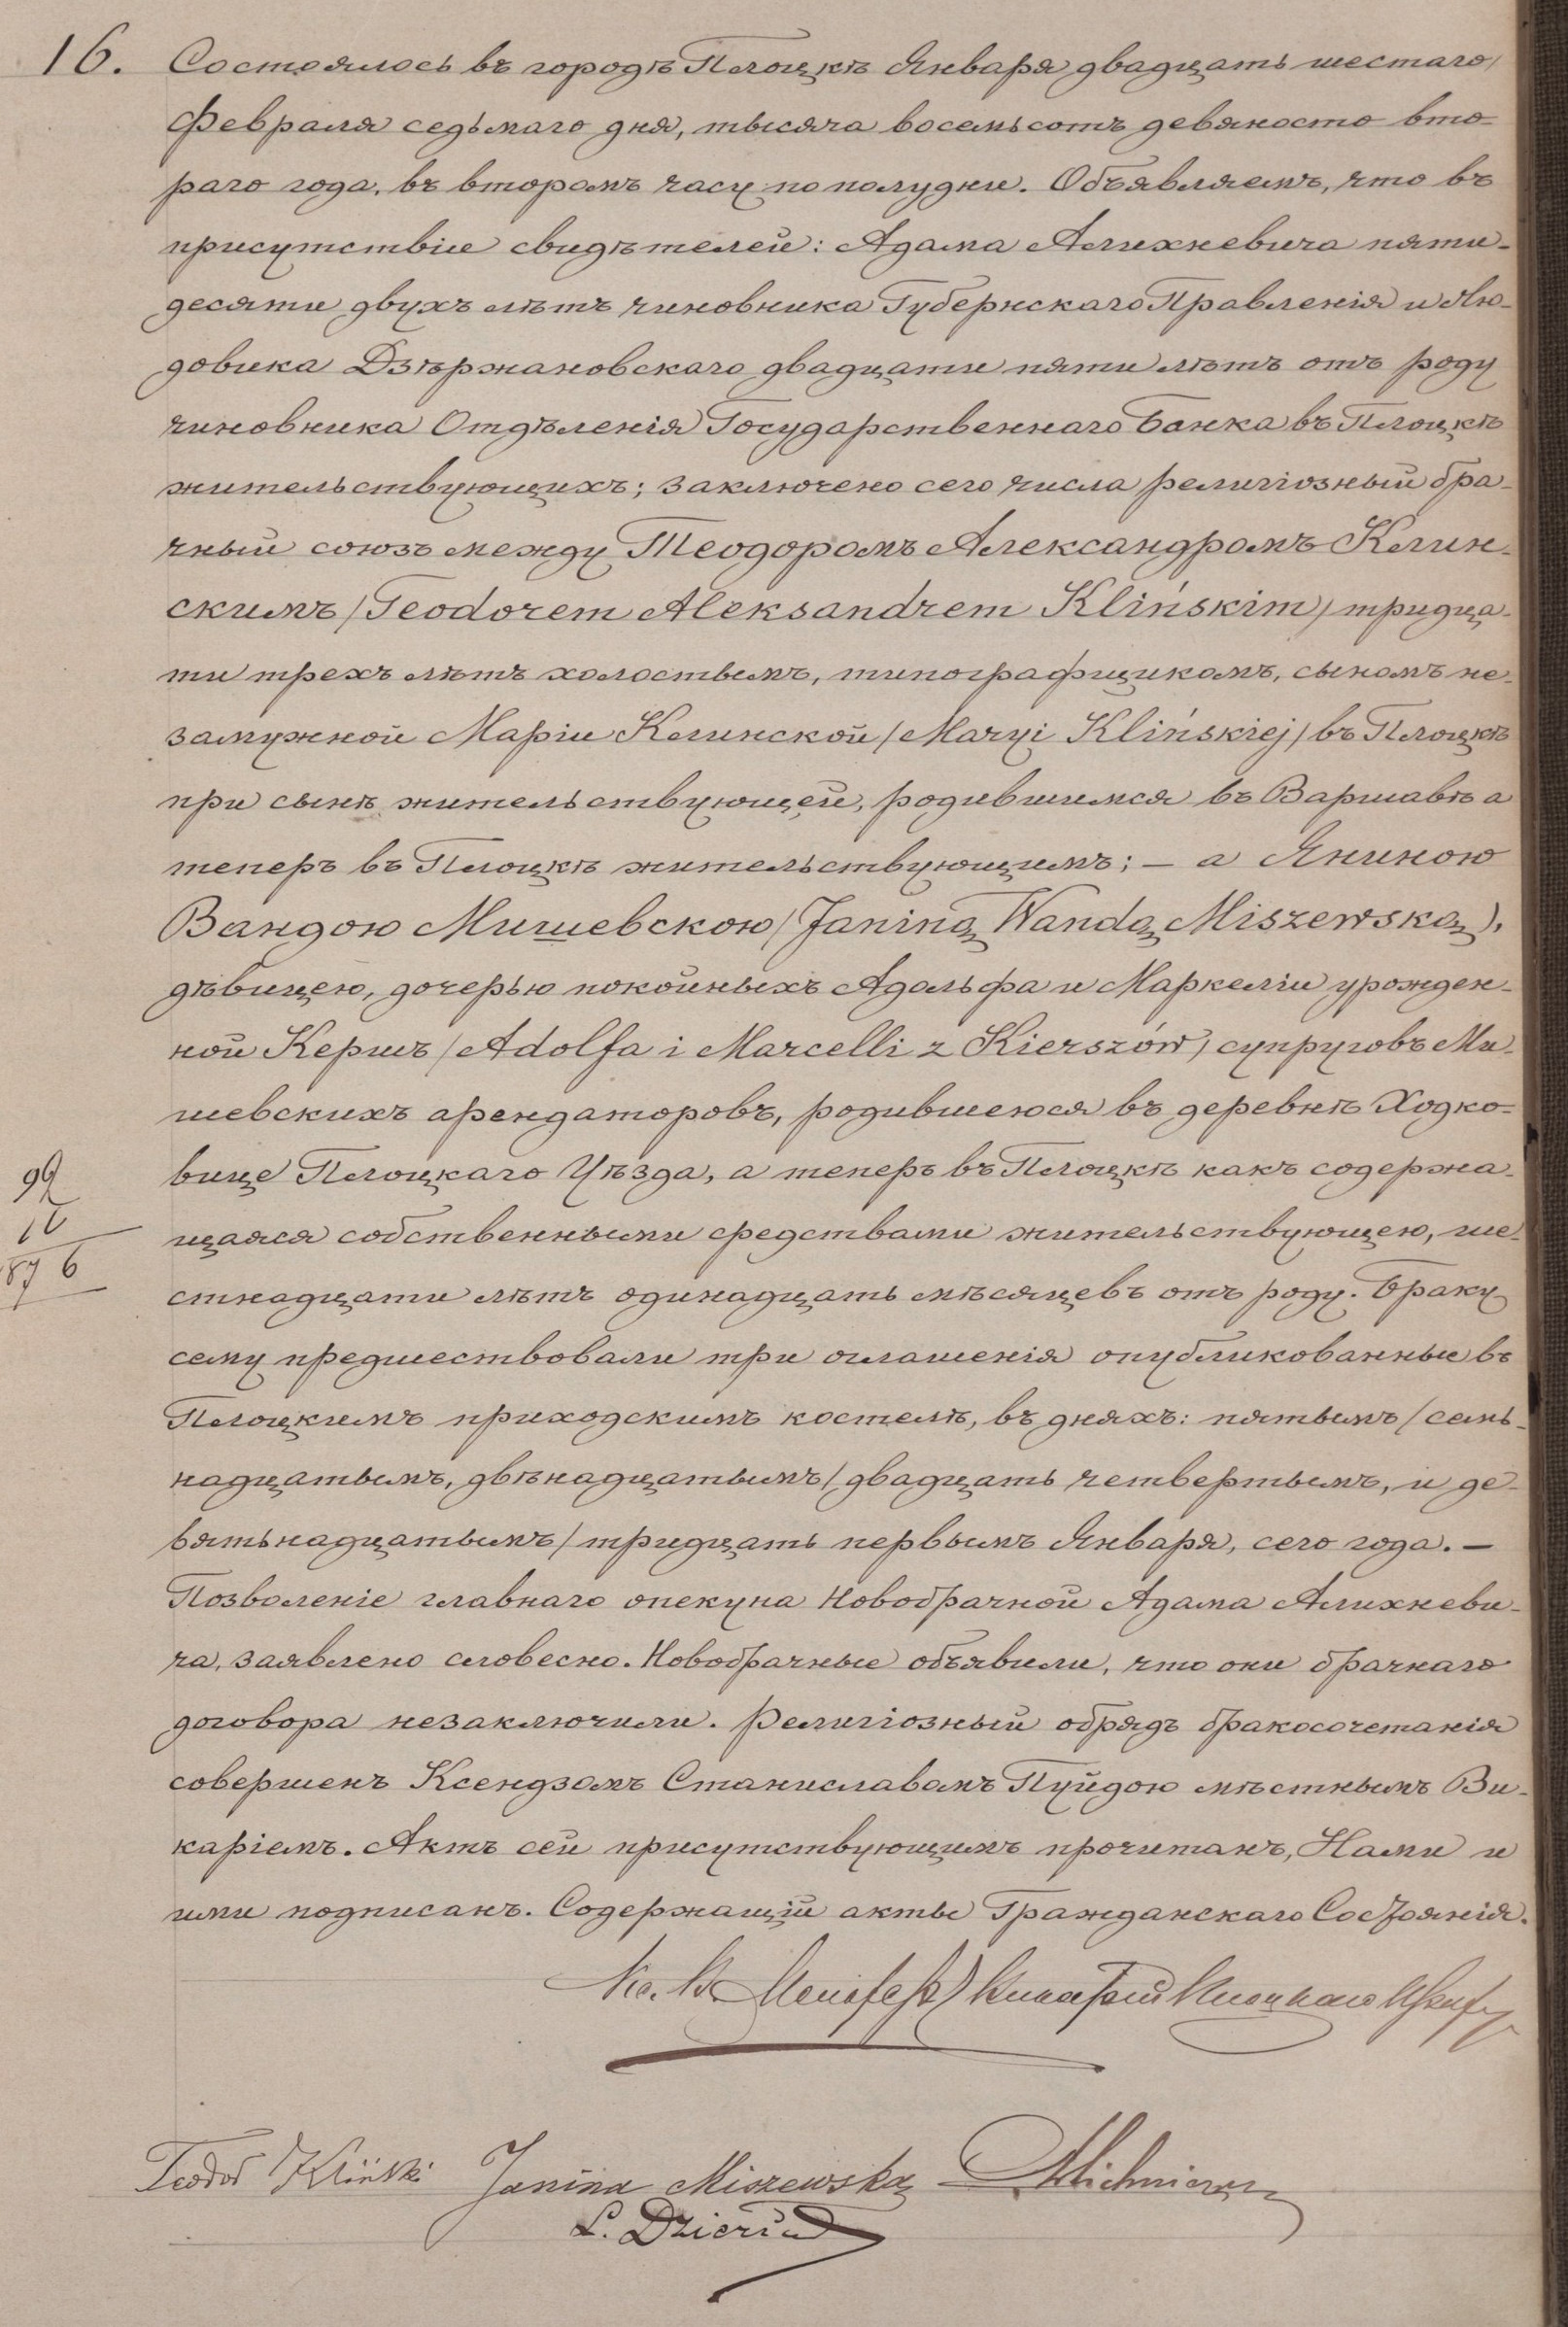 16. Состоялось въ городѣ Плоцкѣ Января двадцать шестаго/
Февраля седьмаго дня, тысяча восемьсотъ девяносто вто-
раго года, въ второмъ часу по полудни. Объявляемъ, что въ
присутствіе свидѣтелей: Адама Алихневича пяти-
десяти двухъ лѣтъ чиновника Губернскаго Правленія и Лю-
довика Дзѣржановскаго двадцати пяти лѣтъ отъ роду
чиновника Отдѣленія Государственнаго Банка въ Плоцкѣ
жительствующихъ; заключено сего числа религіозный бра-
чный союзъ между Теодоромъ Александромъ Клин-
скимъ /Teodorem Aleksandrem Klińskim/ тридца-
ти трехъ лѣтъ холостымъ, типографщикомъ, сыномъ не-
замужной Маріи Клинской /Maryi Klińskiej/ въ Плоцкѣ
при сынѣ жительствующей, родившимся въ Варшавѣ а
теперъ въ Плоцкѣ жительствующимъ; — а Яниною
Вандою Мишевскою /Janiną Wandą Miszewską),
дѣвицею, дочерью покойныхъ Адольфа и Маркеліи урожден-
ной Кершъ /Adolfa i Marcelli z Kierszów/ супруговъ Ми-
шевскихъ арендаторовъ, родившеюся въ деревнѣ Ходко-
вице Плоцкаго Уѣзда, а теперъ въ Плоцкѣ какъ содержа-
щаяся собственными средствами жительствующею, ше-
стнадцати лѣтъ одинадцать мѣсяцевъ отъ роду. Браку
сему предшествовали три оглашенія опубликованные въ
Плоцкимъ приходскимъ костелѣ, въ дняхъ: пятымъ /семь-
надцатымъ, двѣнадцатымъ/ двадцать четвертымъ, и де-
вятьнадцатымъ/ тридцать первымъ Января, сего года. —
Позволеніе главнаго опекуна Новобрачной Адама Алихневи-
ча, заявлено словесно. Новобрачные объявили, что они брачнаго
договора незаключили. Религіозный обрядъ бракосочетанія
совершенъ Ксендзомъ Станиславомъ Пуйдою мѣстнымъ Ви-
каріемъ. Актъ сей присутствующимъ прочитанъ, Нами и
ими подписанъ. Содержащій акты Гражданскаго Состоянія.
92
16
87 6
Teodor Kliński Janina Miszewska